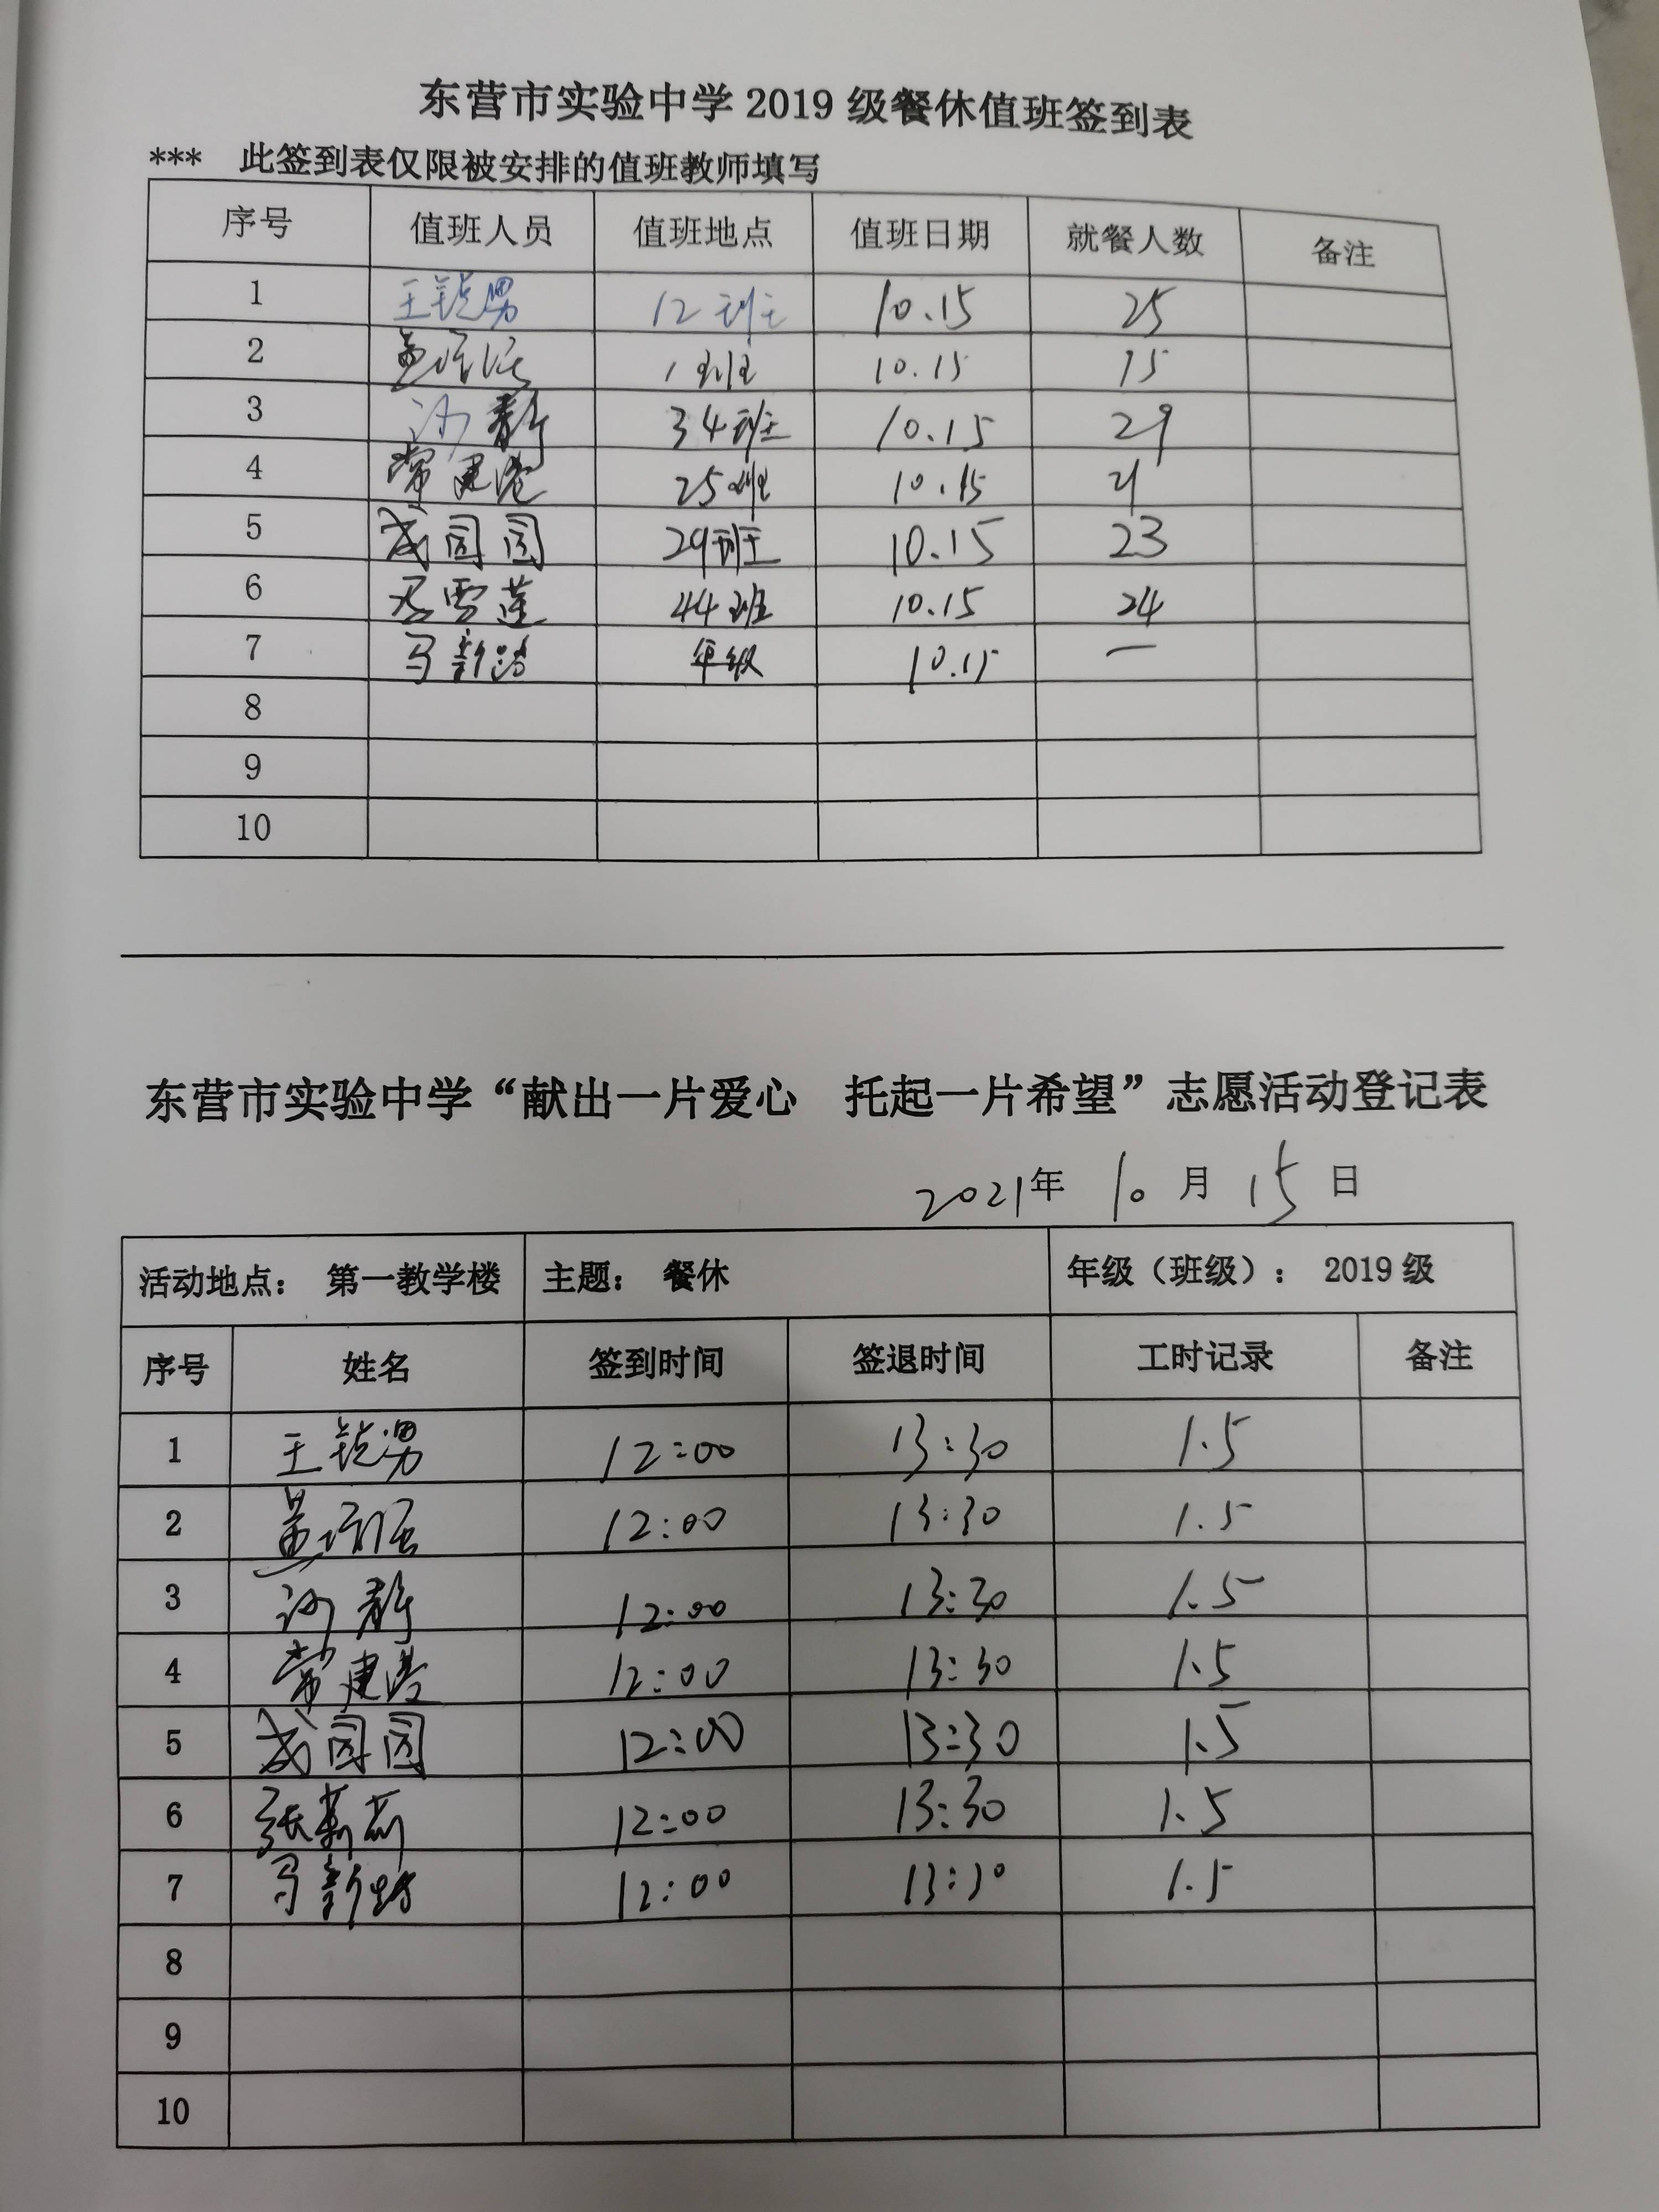 东营市实验中学2019级餐休值班签到表
*** 此签到表仅限被安排的值班教师填写
序号 值班人员 值班地点 值班日期 就餐人数 备注
1 王锐男 12班 10.15 25
2 1班 10.15 15
3 沙静 34班 10.15 29
4 常建港 25班 10.15 21
5 成园园 29班 10.15 23
6 雪莲 44班 10.15 24
7 马新 年级 10.15 一
8
9
10
东营市实验中学“献出一片爱心 托起一片希望”志愿活动登记表
2021年 10月 15日
活动地点： 第一教学楼 主题： 餐休 年级（班级）： 2019级
序号 姓名 签到时间 签退时间 工时记录 备注
1 王锐男 12:00 13:30 1.5
2 12:00 13:30 1.5
3 沙静 12:00 13:30 1.5
4 常建港 12:00 13:30 1.5
5 成园园 12:00 13:30 1.5
6 张莉莉 12:00 13:30 1.5
7 马新 12:00 13:30 1.5
8
9
10